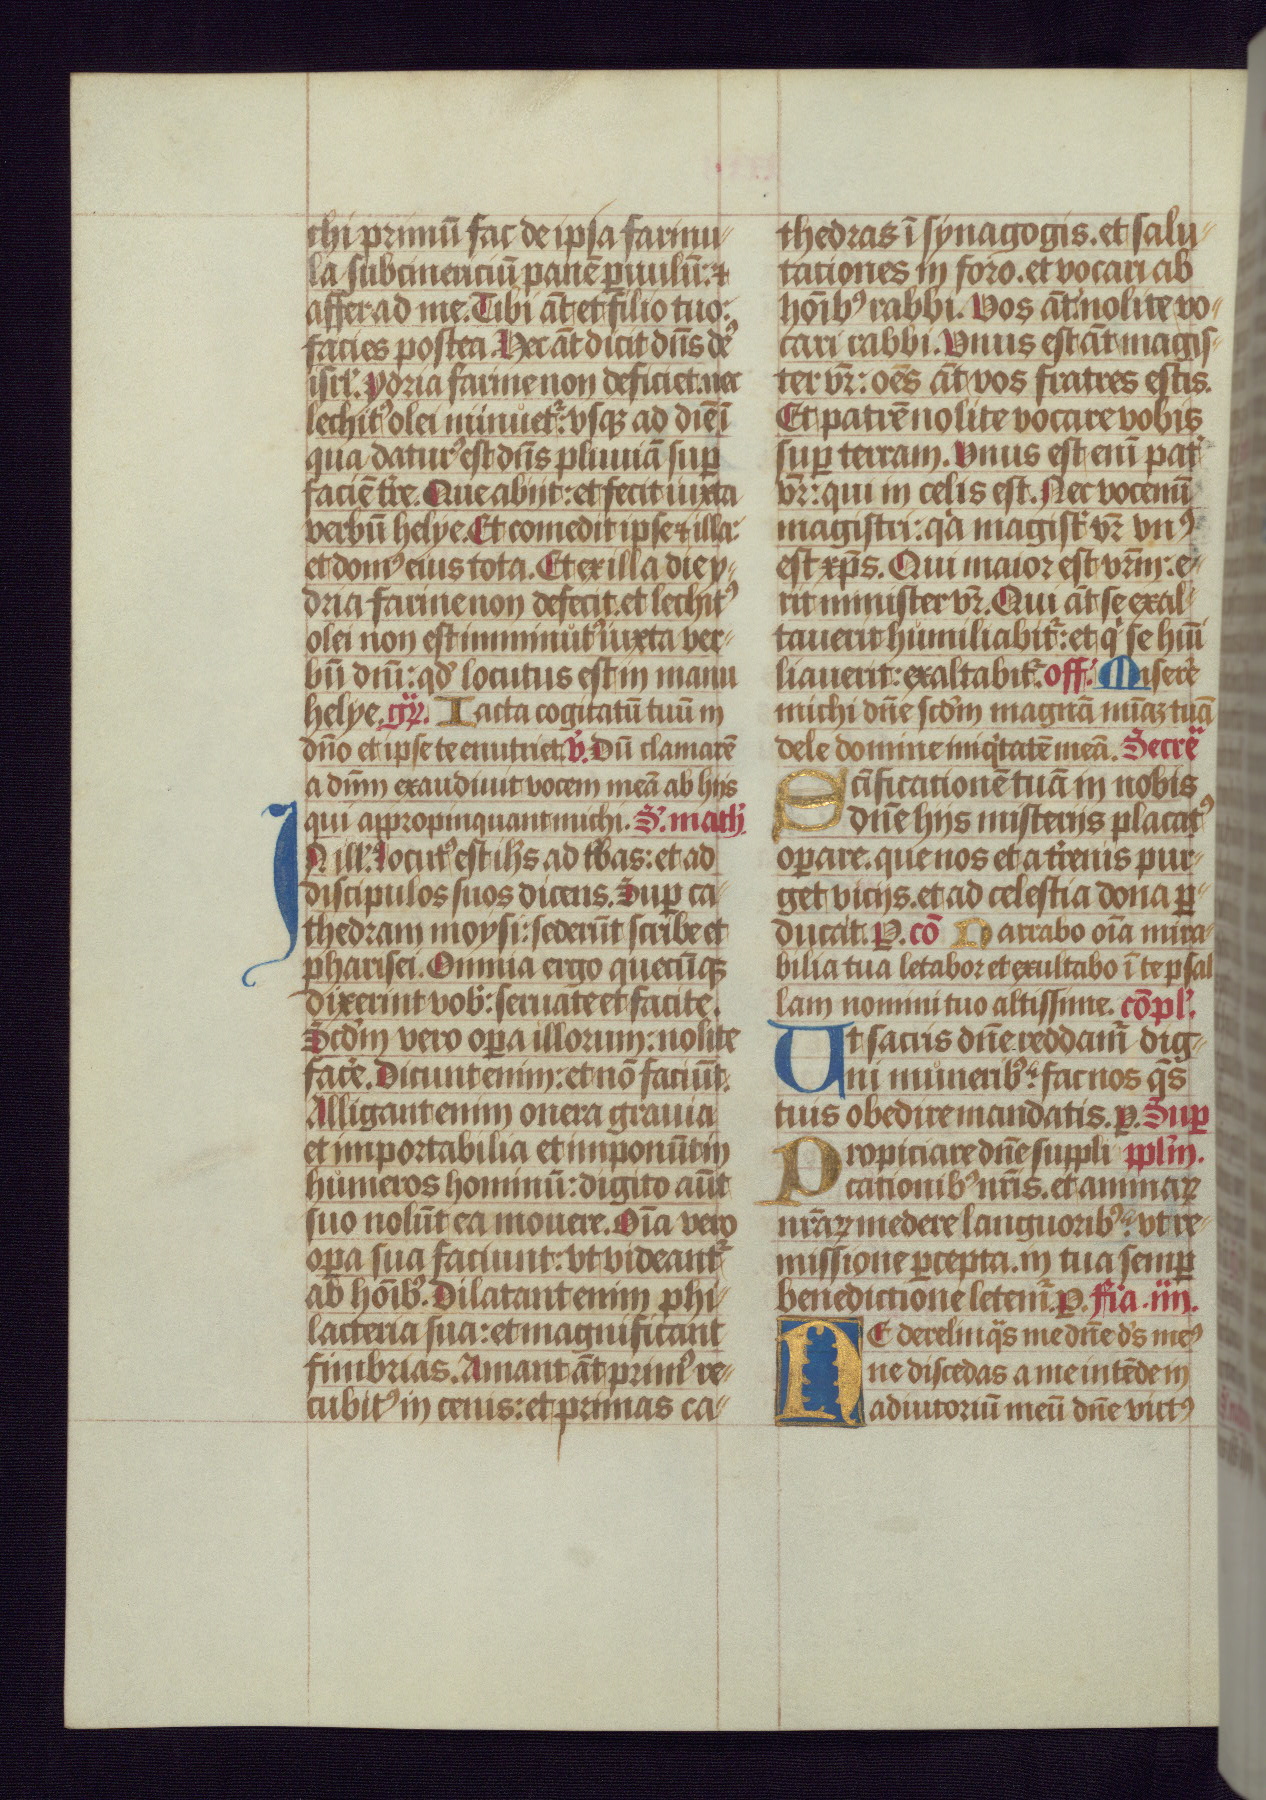 chi primū fac de ipsa farinu-
la subcinericiū panē ꝑuulū: ⁊
affer ad me. Tibi āt et filio tuo:
facies postea. Hec āt dicit dn̄s deꝰ
isrl'. ydria farine non deficiet. nec
lechitꝰ olei minuet᷑: vsqꝫ ad diē ī
qua daturꝰ est dn̄s pluuiā suꝑ
faciē tr̄e. Que abijt: et fecit iuxta
verbū helye. Et comedit ipse ⁊ illa:
et domꝰ eius tota. Et ex illa die y-
dria farine non defecit. et lechitꝰ
olei non est imminutꝰ iuxta ver-
bū dn̄i: qd' locutus est in manu
helye. gr̄. Iacta cogitatū tuū in
dn̄o et ipse te enutriet. v̄. Dū clamarē
a dn̄m exaudiuit vocem meā ab hijs
qui appropinquant michi. S. math'
IN ill'. locutꝰ est ih̄s ad t᷑bas: et ad
discipulos suos dicens. Suꝑ ca-
thedram moysi: sederūt scribe et
pharisei. Omnia ergo quecūqꝫ
dixerint vob': seruate et facite.
Scd̄m vero oꝑa illorum: nolite
facē. Dicunt enim: et nō faciūt.
Alligant enim onera grauia
et importabilia et imponūt in
humeros hominū: digito aūt
suo nolūt ea mouere. Oīa vero
oꝑa sua faciunt: vt videant᷑
ab hōibꝰ. Dilatant enim phi-
lacteria sua: et magnificant
fimbrias. Amant āt primꝰ re-
cubitꝰ in cenis: et primas ca-
thedras ī synagogis. et salu-
tationes in foro. et vocari ab
hōibꝰ rabbi. Vos āt nolite vo-
cari rabbi. Vnus est āt magis-
ter vr̄: oēs āt vos fratres estis.
Et patrē nolite vocare vobis
suꝑ terram. Vnus est enī pat᷑
vr̄: qui in celis est. Nec vocemī
magistri: qa magist᷑ vr̄ vnꝰ
est xp̄s. Qui maior est vr̄m: e-
rit minister vr̄. Qui āt se exal-
tauerit humiliabit᷑: et q' se hūi
liauerit: exaltabit᷑. off'. Miserē
michi dn̄e scd̄m magnā mīaꝫ tuā
dele domine iniq'tatē meā. Secrē
Scīficationē tuā in nobis
dn̄e hijs misterijs placatꝰ
oꝑare. que nos et a tr̄enis pur-
get vicijs. et ad celestia dona ꝑ-
ducat. P. cō Narrabo oīa mira-
bilia tua letabor et exultabo ī te psal
lam nomini tuo altissime. cōpl'.
Ut sacris dn̄e reddam᷑ dig-
ni muneribꝰ: fac nos q̄s
tuis obedire mandatis. p. Suꝑ
Propiciare dn̄e suppli ppl'm.
cationibꝰ nr̄is. et animaꝝ
nr̄aꝝ medere languoribꝰ: vt re-
missione ꝑcepta. in tua semꝑ
benedictione letem᷑. P. fr̄ia .iiij.
NE derelinq̄s me dn̄e d's meꝰ
ne discedas a me intēde in
adiutoriū meū dn̄e virtꝰ